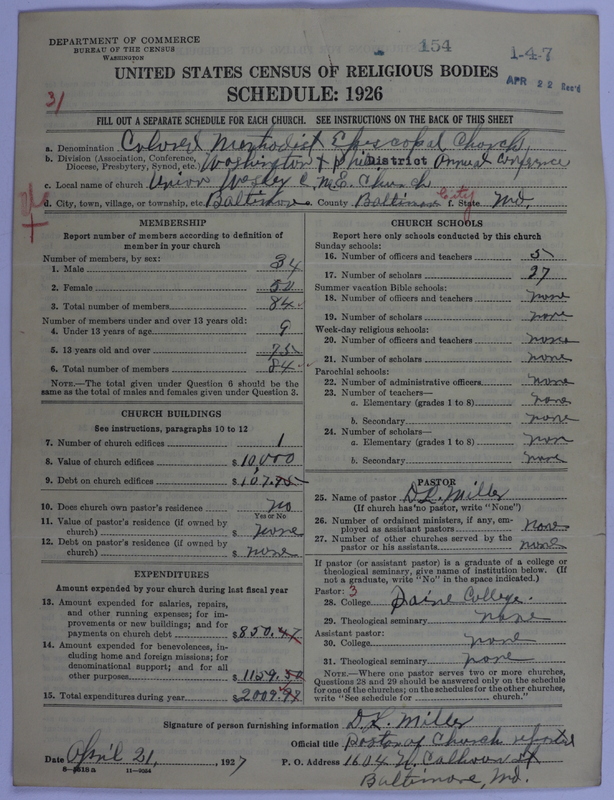 DEPARTMENT OF COMMERCE
BUREAU OF THE CENSUS
WASHINGTON
154
1-4-7
APR 22 Rec'd
UNITED STATES CENSUS OF RELIGIOUS BODIES
SCHEDULE: 1926
31
FILL OUT A SEPARATE SCHEDULE FOR EACH CHURCH. SEE INSTRUCTIONS ON THE BACK OF THIS SHEET
a. Denomination Colored Methodist Episcopal Church
b. Division (Association, Conference, Diocese, Presbytery, Synod, etc.) Washington + Phila District Annual Conference
c. Local name of church Union Wesley C. M. E. Church
d. City, town, village, or township, etc. Baltimore e. County Baltimore City f. State Md.
MEMBERSHIP
Report number of members according to definition of
member in your church
Number of members, by sex:
1. Male 34
2. Female 50
3. Total number of members 84
Number of members under and over 13 years old:
4. Under 13 years of age 9
5. 13 years old and over 75
6. Total number of members 84
NOTE.—The total given under Question 6 should be
same as the total of males and females given under Question 3.
CHURCH BUILDINGS
See instructions, paragraphs 10 to 12
7. Number of church edifices 1
8. Value of church edifices $10,000
9. Debt on church edifices $
10. Does church own pastor's residence no
Yes or No
11. Value of pastor's residence (if owned by
church) $ none
12. Debt on pastor's residence (if owned by
church) $ none
EXPENDITURES
Amount expended by your church during last fiscal year
13. Amount expended for salaries, repairs,
and other running expenses; for im-
provements or new buildings; and for
payments on church debt $850.47
14. Amount expended for benevolences, in-
cluding home and foreign missions; for
denominational support; and for all
other purposes $1159.50
15. Total expenditures during year $2009.97
CHURCH SCHOOLS
Report here only schools conducted by this church
Sunday schools:
16. Number of officers and teachers 5
17. Number of scholars 27
Summer vacation Bible schools:
18. Number of officers and teachers none
19. Number of scholars none
Week-day religious schools:
20. Number of officers and teachers none
21. Number of scholars none
Parochial schools:
22. Number of administrative officers none
23. Number of teachers—
a. Elementary (grades 1 to 8) none
b. Secondary none
24. Number of scholars—
a. Elementary (grades 1 to 8) non
b. Secondary none
PASTOR
25. Name of pastor D. L. Miller
(If church has no pastor, write "None")
26. Number of ordained ministers, if any, em-
ployed as assistant pastors none
27. Number of other churches served by the
pastor or his assistants none
If pastor (or assistant pastor) is a graduate of a college or
theological seminary, give name of institution below. (If
not a graduate, write "No" in the space indicated.)
Pastor: 3
28. College Paine College.
29. Theological seminary none
Assistant pastor:
30. College none
31. Theological seminary none
NOTE.—Where one pastor serves two or more churches,
Questions 28 and 29 should be answered only on the schedule
for one of the churches; on the schedules for the other churches,
write "See schedule for church."
Signature of person furnishing information D. L. Miller
Official title Pastor of Church reported
Date April 21, 1927 P. O. Address 1604 N. Calhoun St
Baltimore, Md.
8—5518 a 11—9054